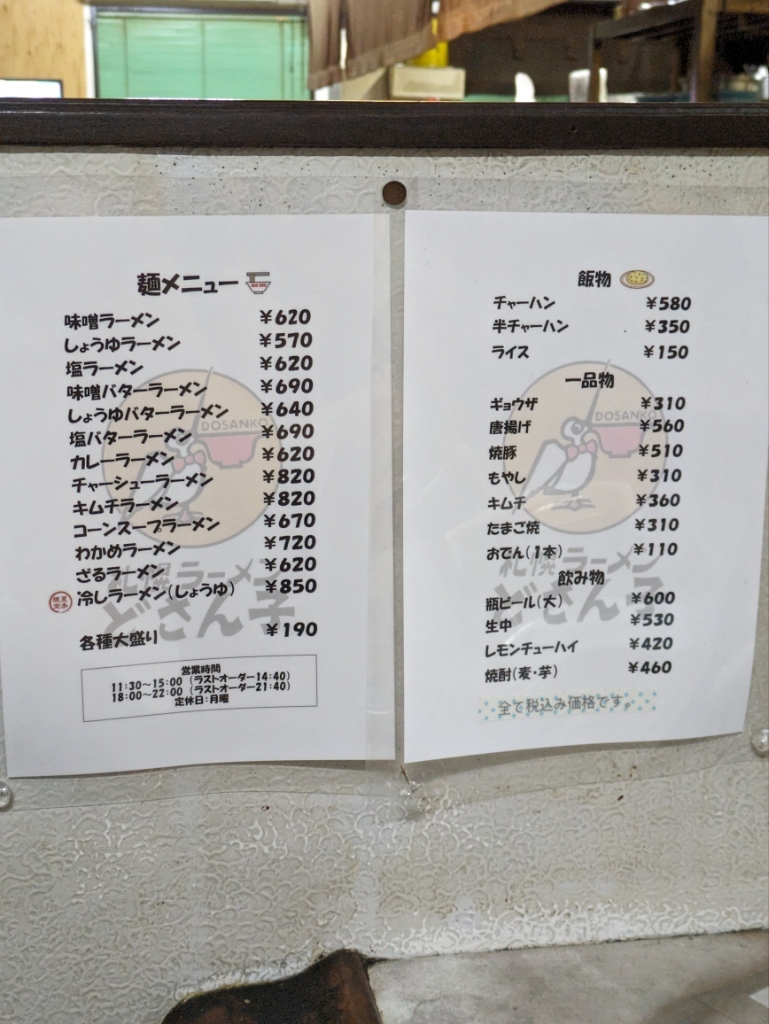 麺メニュー
味噌ラーメン ¥620
しょうゆラーメン ¥570
塩ラーメン ¥620
味噌バターラーメン ¥690
しょうゆバターラーメン ¥640
塩バターラーメン ¥690
カレーラーメン ¥620
チャーシューラーメン ¥820
キムチラーメン ¥820
コーンスープラーメン ¥670
わかめラーメン ¥720
ざるラーメン ¥620
冷しラーメン(しょうゆ) ¥850
各種大盛り ¥190
営業時間
11:30～15:00 (ラストオーダー14:40)
18:00～22:00 (ラストオーダー21:40)
定休日:月曜
DOSANKO
札幌ラーメン
どさん子
飯物
チャーハン ¥580
半チャーハン ¥350
ライス ¥150
一品物
ギョウザ ¥310
唐揚げ ¥560
焼豚 ¥510
もやし ¥310
キムチ ¥360
たまご焼 ¥310
おでん(1本) ¥110
飲み物
瓶ビール(大) ¥600
生中 ¥530
レモンチューハイ ¥420
焼酎(麦・芋) ¥460
全て税込み価格です。
DOSANKO
札幌ラーメン
どさん子